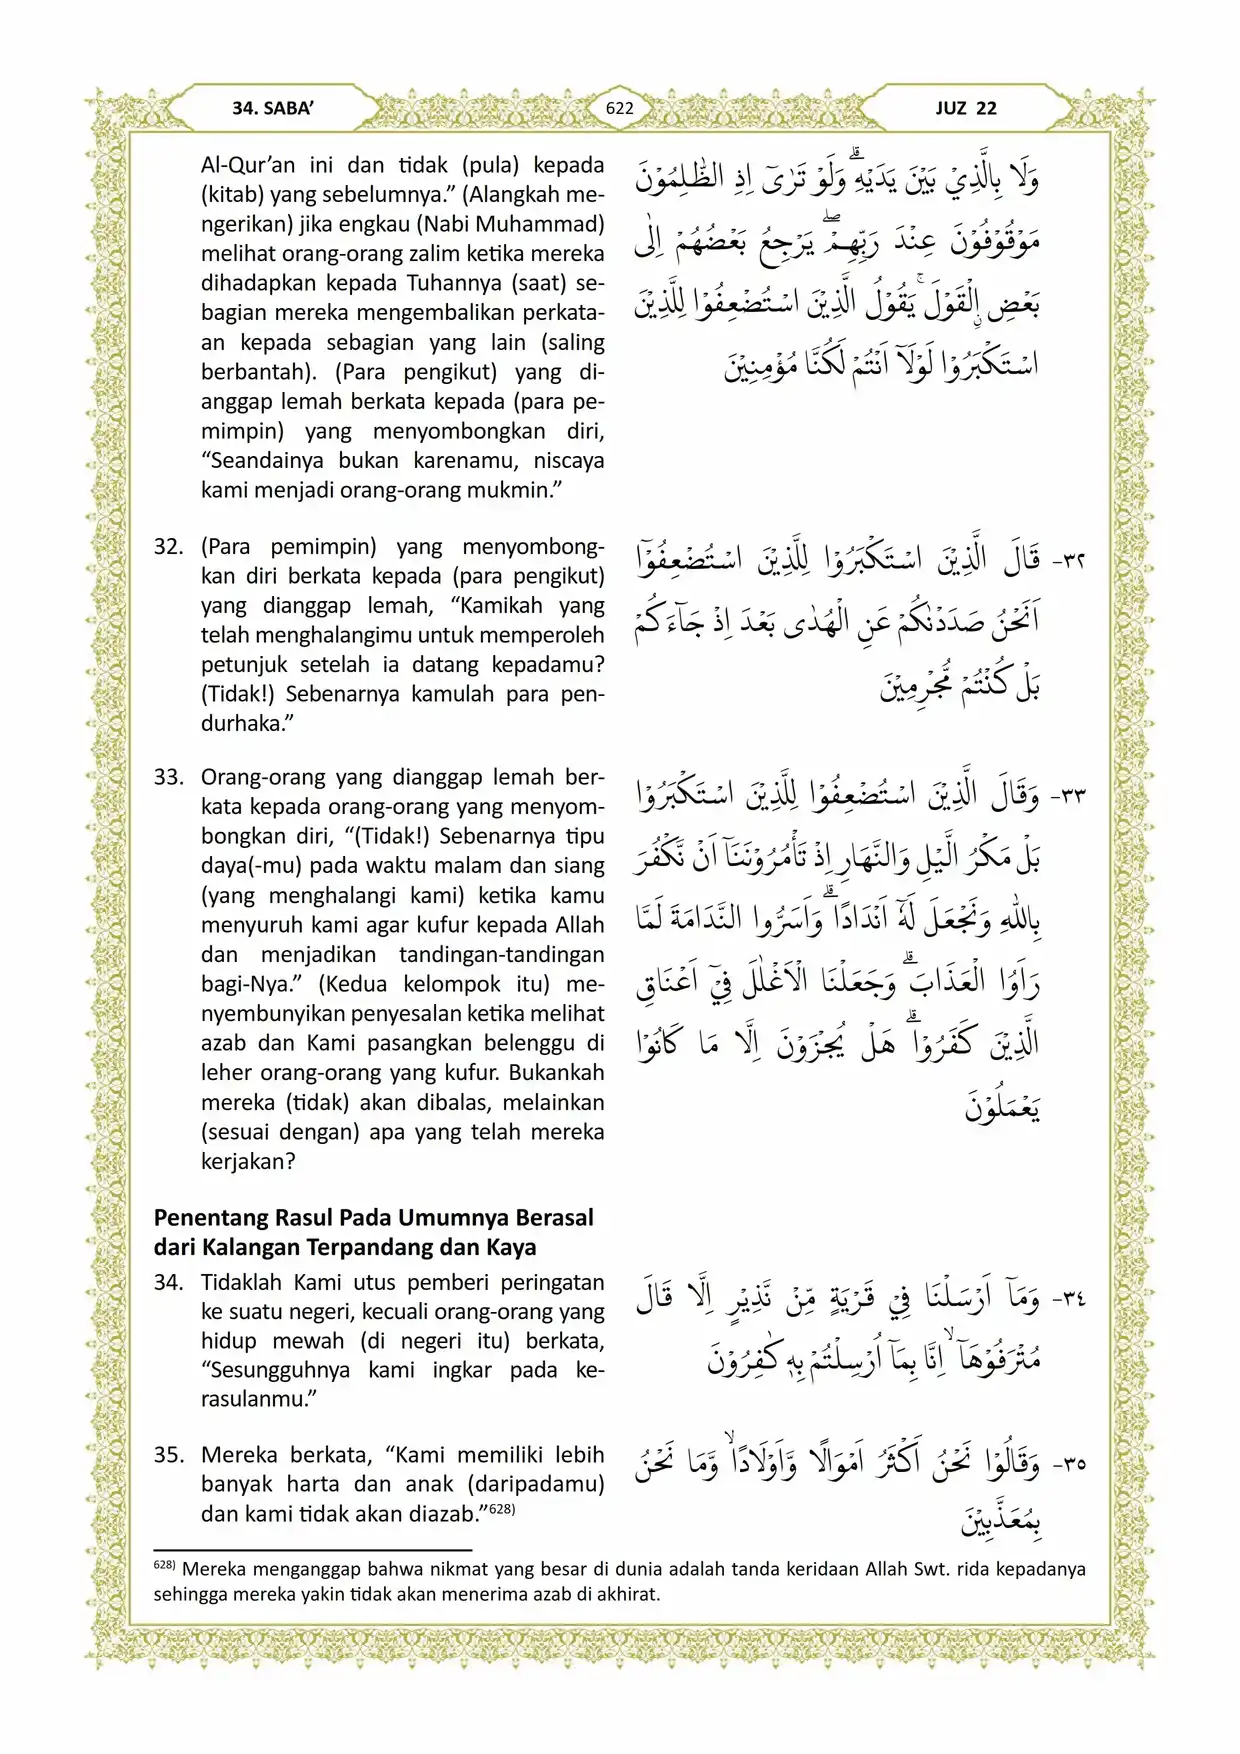 34. SABA’
622
JUZ 22
Al-Qur’an ini dan tidak (pula) kepada
(kitab) yang sebelumnya.” (Alangkah me-
ngerikan) jika engkau (Nabi Muhammad)
melihat orang-orang zalim ketika mereka
dihadapkan kepada Tuhannya (saat) se-
bagian mereka mengembalikan perkata-
an kepada sebagian yang lain (saling
berbantah). (Para pengikut) yang di-
anggap lemah berkata kepada (para pe-
mimpin) yang menyombongkan diri,
“Seandainya bukan karenamu, niscaya
kami menjadi orang-orang mukmin.”
وَلَا بِالَّذِيْ بَيْنَ يَدَيْهِۗ وَلَوْ تَرٰىٓ اِذِ الظّٰلِمُوْنَ
مَوْقُوْفُوْنَ عِنْدَ رَبِّهِمْۖ يَرْجِعُ بَعْضُهُمْ اِلٰى
بَعْضِ ِۨالْقَوْلَۚ يَقُوْلُ الَّذِيْنَ اسْتُضْعِفُوْا لِلَّذِيْنَ
اسْتَكْبَرُوْا لَوْلَآ اَنْتُمْ لَكُنَّا مُؤْمِنِيْنَ
32. (Para pemimpin) yang menyombong-
kan diri berkata kepada (para pengikut)
yang dianggap lemah, “Kamikah yang
telah menghalangimu untuk memperoleh
petunjuk setelah ia datang kepadamu?
(Tidak!) Sebenarnya kamulah para pen-
durhaka.”
٣٢- قَالَ الَّذِيْنَ اسْتَكْبَرُوْا لِلَّذِيْنَ اسْتُضْعِفُوْٓا
اَنَحْنُ صَدَدْنٰكُمْ عَنِ الْهُدٰى بَعْدَ اِذْ جَاۤءَكُمْ
بَلْ كُنْتُمْ مُّجْرِمِيْنَ
33. Orang-orang yang dianggap lemah ber-
kata kepada orang-orang yang menyom-
bongkan diri, “(Tidak!) Sebenarnya tipu
daya(-mu) pada waktu malam dan siang
(yang menghalangi kami) ketika kamu
menyuruh kami agar kufur kepada Allah
dan menjadikan tandingan-tandingan
bagi-Nya.” (Kedua kelompok itu) me-
nyembunyikan penyesalan ketika melihat
azab dan Kami pasangkan belenggu di
leher orang-orang yang kufur. Bukankah
mereka (tidak) akan dibalas, melainkan
(sesuai dengan) apa yang telah mereka
kerjakan?
٣٣- وَقَالَ الَّذِيْنَ اسْتُضْعِفُوْا لِلَّذِيْنَ اسْتَكْبَرُوْا
بَلْ مَكْرُ الَّيْلِ وَالنَّهَارِ اِذْ تَأْمُرُوْنَنَآ اَنْ نَّكْفُرَ
بِاللّٰهِ وَنَجْعَلَ لَهٗٓ اَنْدَادًاۗ وَاَسَرُّوا النَّدَامَةَ لَمَّا
رَاَوُا الْعَذَابَۗ وَجَعَلْنَا الْاَغْلٰلَ فِيْٓ اَعْنَاقِ
الَّذِيْنَ كَفَرُوْاۗ هَلْ يُجْزَوْنَ اِلَّا مَا كَانُوْا
يَعْمَلُوْنَ
Penentang Rasul Pada Umumnya Berasal
dari Kalangan Terpandang dan Kaya
34. Tidaklah Kami utus pemberi peringatan
ke suatu negeri, kecuali orang-orang yang
hidup mewah (di negeri itu) berkata,
“Sesungguhnya kami ingkar pada ke-
rasulanmu.”
٣٤- وَمَآ اَرْسَلْنَا فِيْ قَرْيَةٍ مِّنْ نَّذِيْرٍ اِلَّا قَالَ
مُتْرَفُوْهَآ ۙاِنَّا بِمَآ اُرْسِلْتُمْ بِهٖ كٰفِرُوْنَ
35. Mereka berkata, “Kami memiliki lebih
banyak harta dan anak (daripadamu)
dan kami tidak akan diazab.”628)
٣٥- وَقَالُوْا نَحْنُ اَكْثَرُ اَمْوَالًا وَّاَوْلَادًاۙ وَّمَا نَحْنُ
بِمُعَذَّبِيْنَ
628) Mereka menganggap bahwa nikmat yang besar di dunia adalah tanda keridaan Allah Swt. rida kepadanya
sehingga mereka yakin tidak akan menerima azab di akhirat.